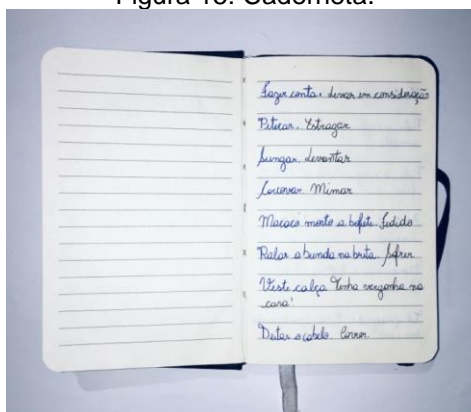 Figura 18. Caderneta.
Fazer conta. Levar em consideração
Petecar. Estragar
Sungar. Levantar
Mimar
Macaco morto a bofete. Fedido
Ralar a bunda na brita. Sofrer
Veste calça Tenha vergonha na
cara!
Deitar o cabelo Correr